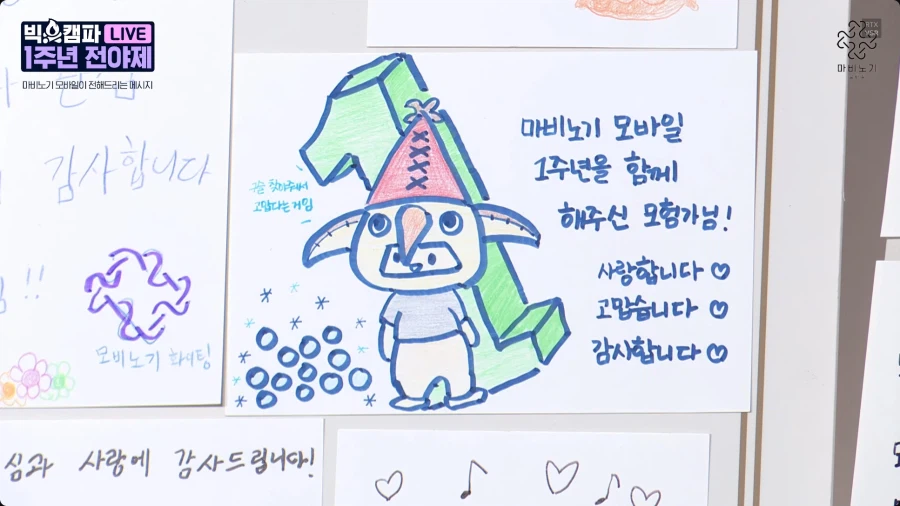 빅캠파 LIVE
1주년 전야제
마비노기 모바일이 전해드리는 메시지
마비노기
감사합니다
!!
모비노기 화이팅
구슬 찾아줘서
고맙다는 거임
마비노기 모바일
1주년을 함께
해주신 모험가님!
사랑합니다 ♡
고맙습니다 ♡
감사합니다 ♡
심과 사랑에 감사드립니다!